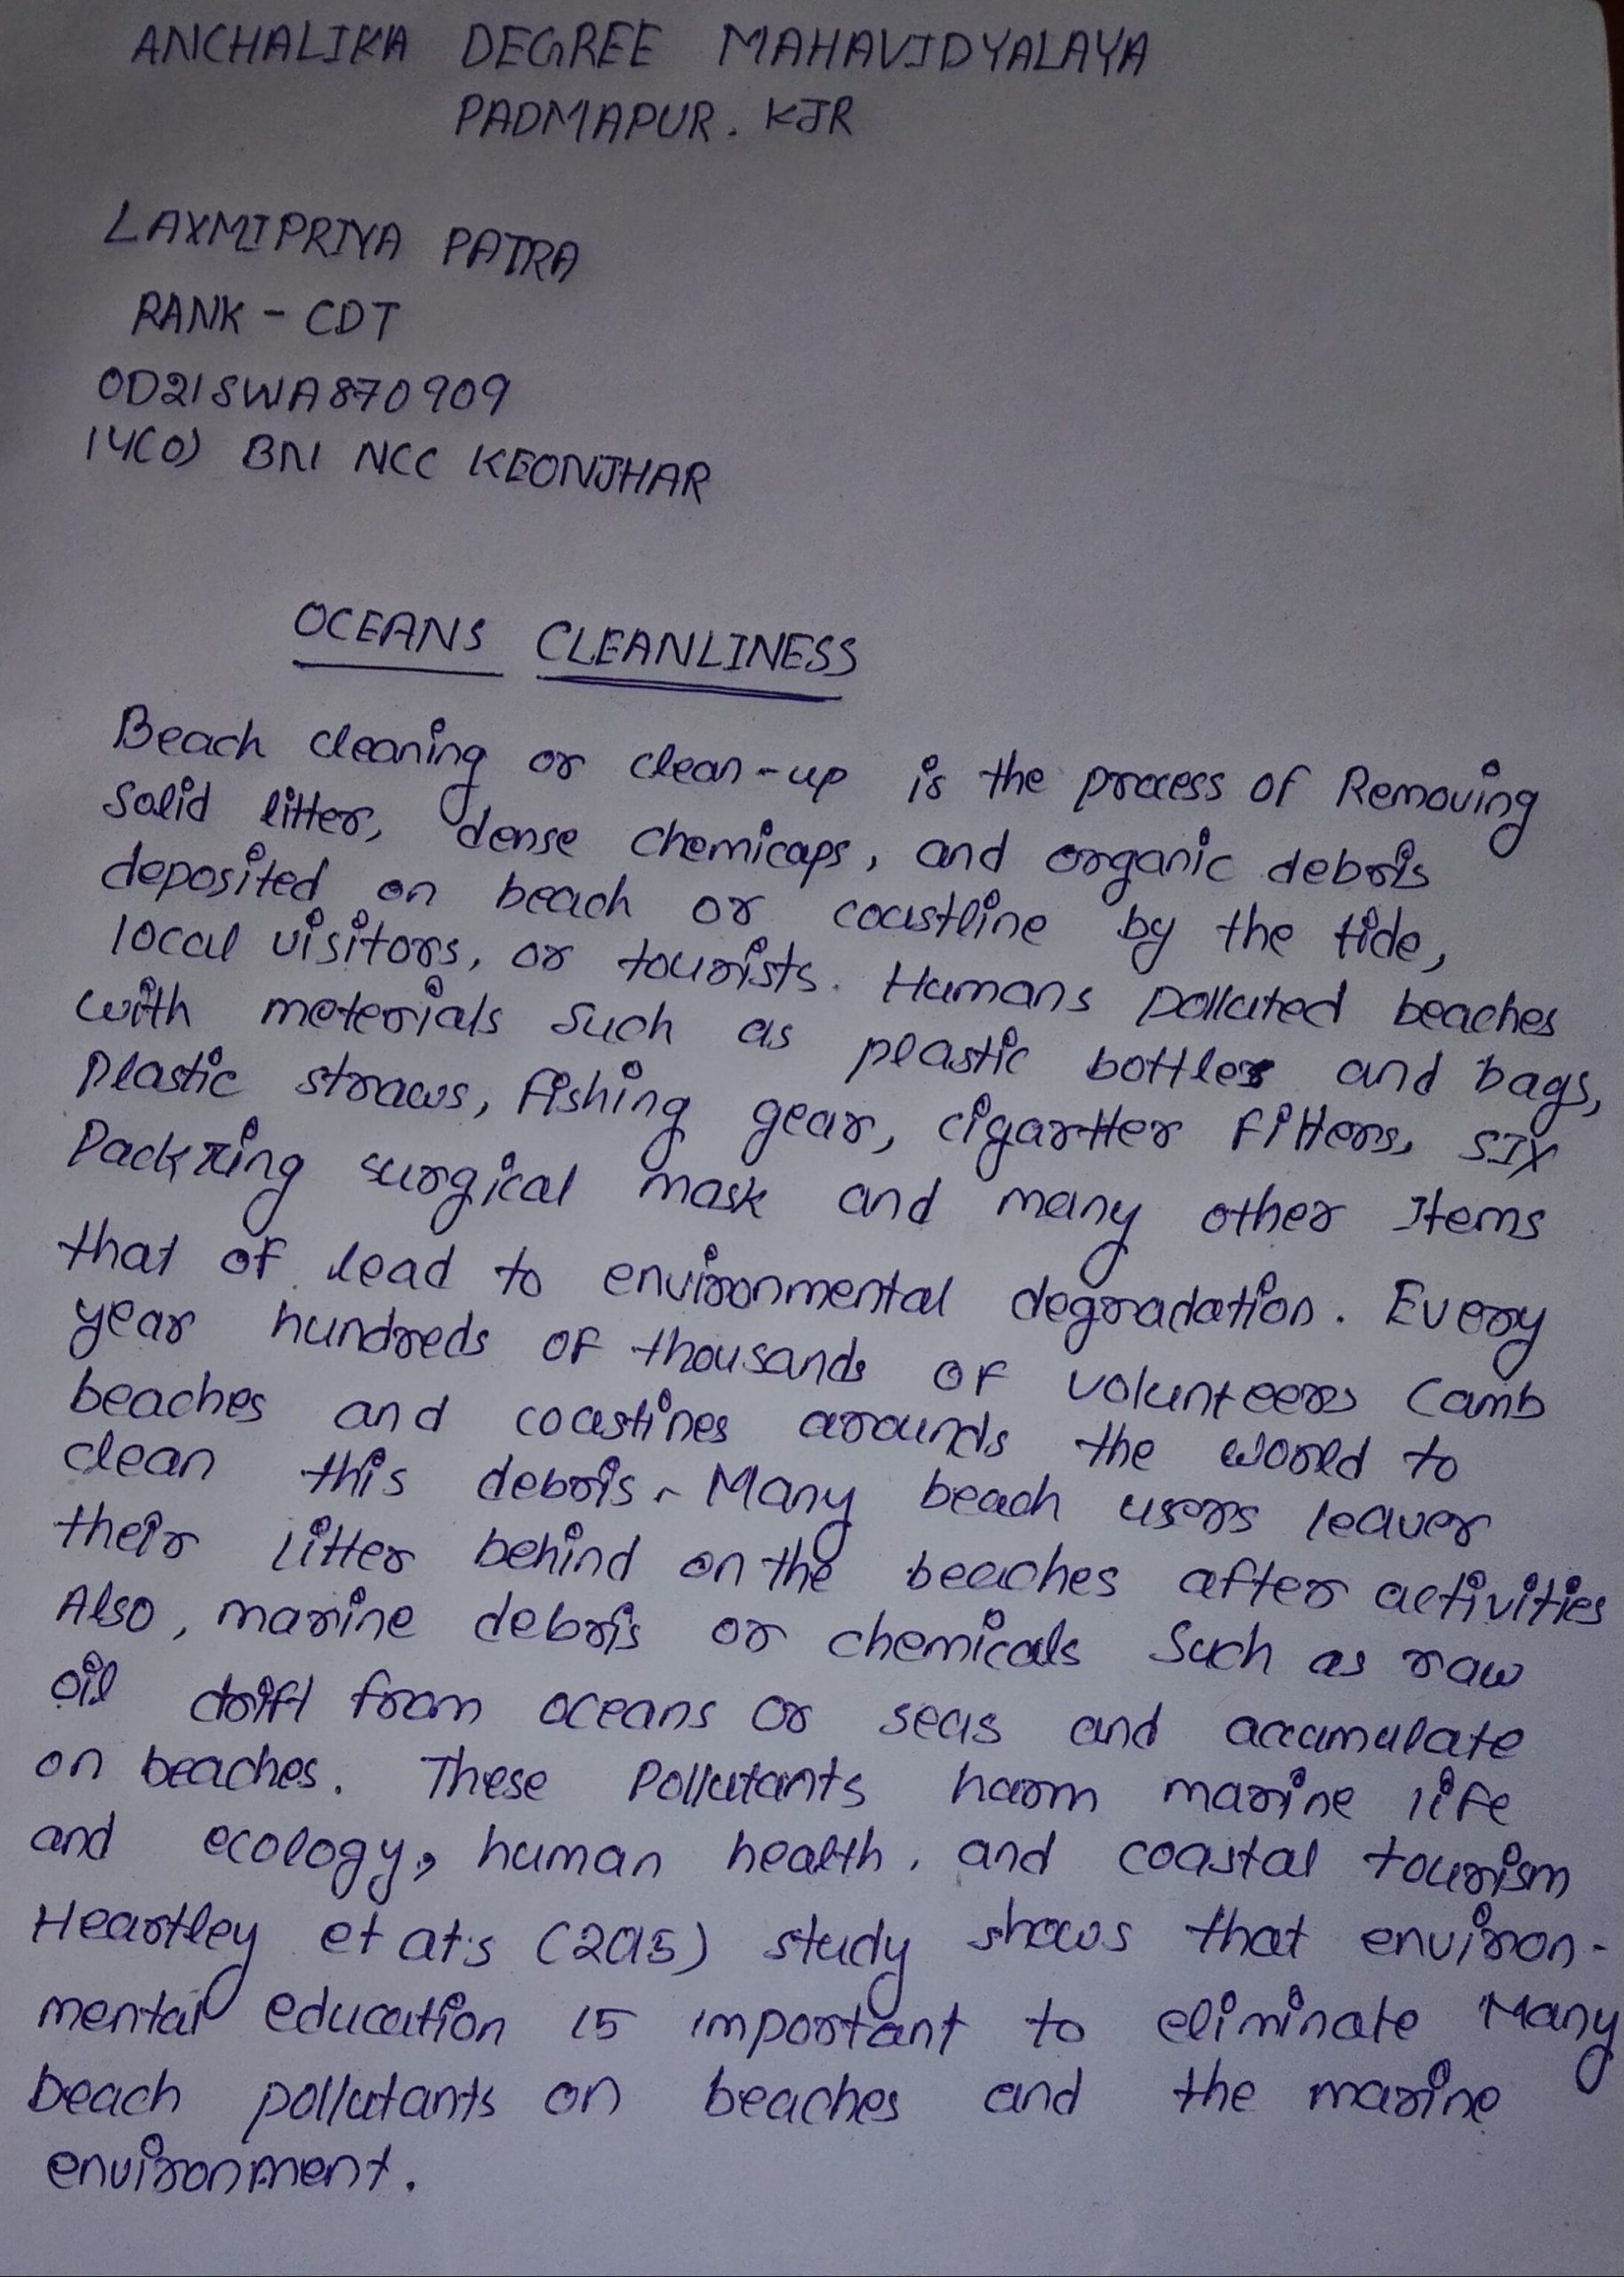 ANCHALIKA DEGREE MAHAVIDYALAYA
PADMAPUR. KJR
LAXMIPRIYA PATRA
RANK - CDT
OD21SWA870909
14(O) BN NCC KEONJHAR
OCEANS CLEANLINESS
Beach cleaning or clean-up is the process of Removing
Solid litter, dense chemicaps, and organic debris
deposited on beach or coastline by the tide,
local visitors, or tourists. Humans polluted beaches
with meterials such as plastic bottles and bags,
Plastic straws, fishing gear, cigartter filters, SIX
Pack ring surgical mask and many other Items
that of lead to environmental degradation. Every
year hundreds of thousands of volunteers Camb
beaches and coastines arounds the world to
clean this debris. Many beach users leaver
their litter behind on the beaches after activities
Also, marine debris or chemicals Such as raw
oil drift from oceans or seas and accumulate
on beaches. These Pollutants harm marine life
and ecology, human health, and coastal tourism
Heartley et at's (2015) study shows that environ-
mental education is important to eliminate Many
beach pollutants on beaches and the marine
environment.